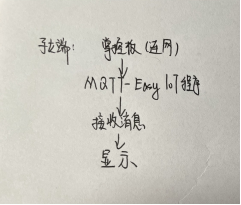 子女端：掌控板（连网）
MQTT-Easy IoT程序
接收消息
显示